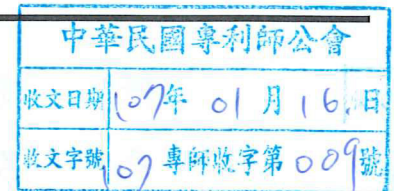 中華民國專利師公會
收文日期 107年 01月 16日
收文字號 107 專師收字第 009號